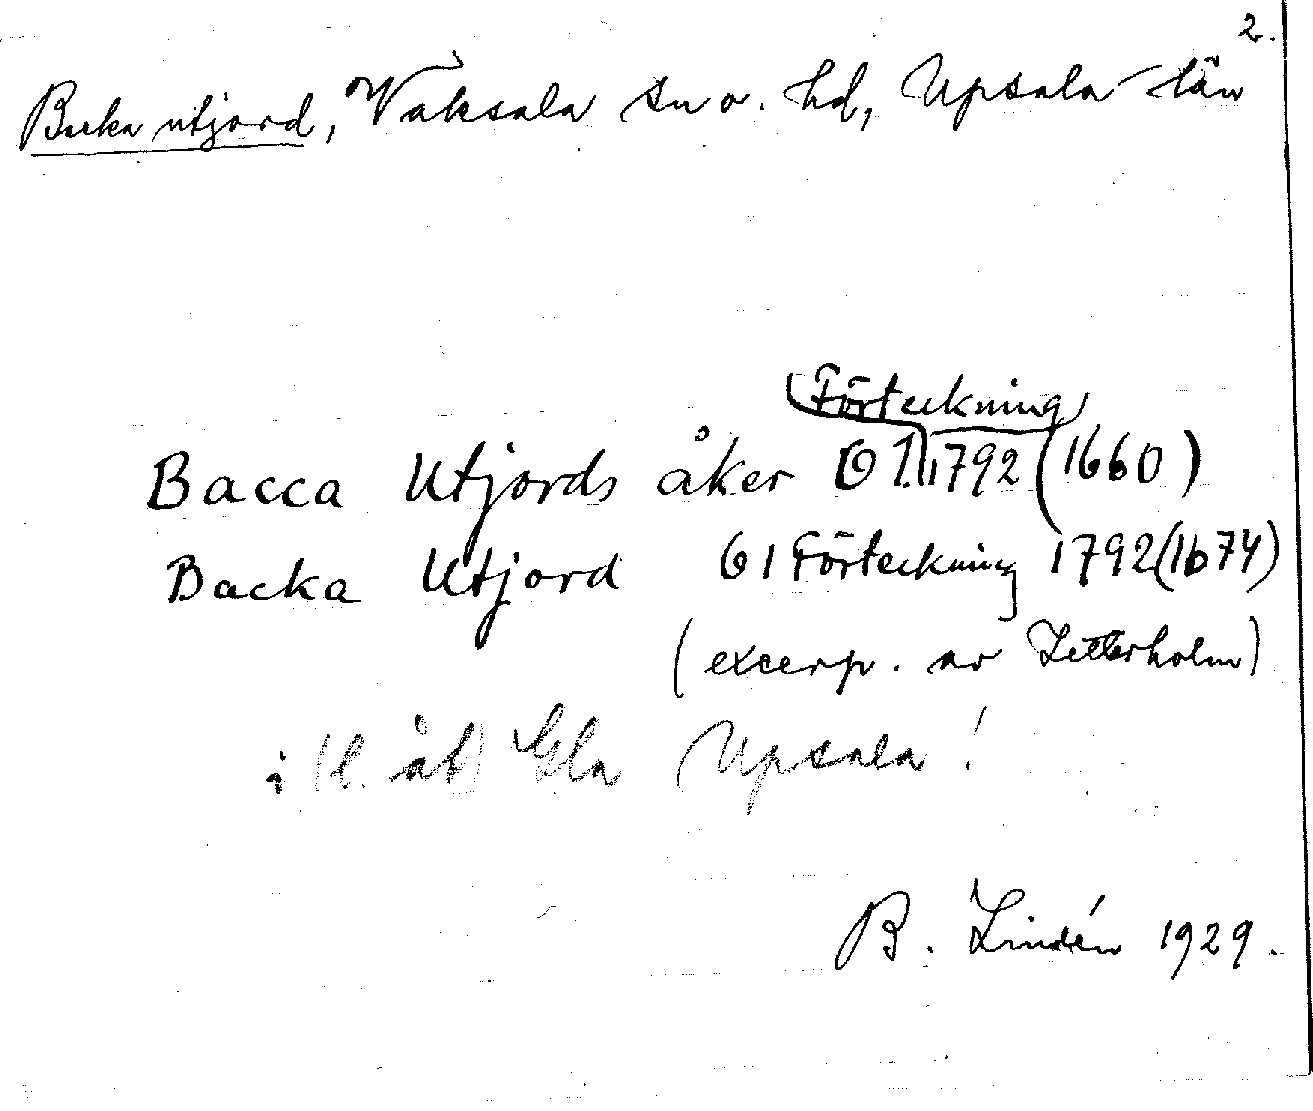 2.
Backa utjord, Vaksala sn o. hd, Upsala län
Förteckning
Bacca Utjords åker 61 1792 (1660)
Backa Utjord 61 Förteckning 1792 (1674)
(excerp. av Zetterholm)
i (l. åt) Gla Upsala!
B. Lindén 1929.